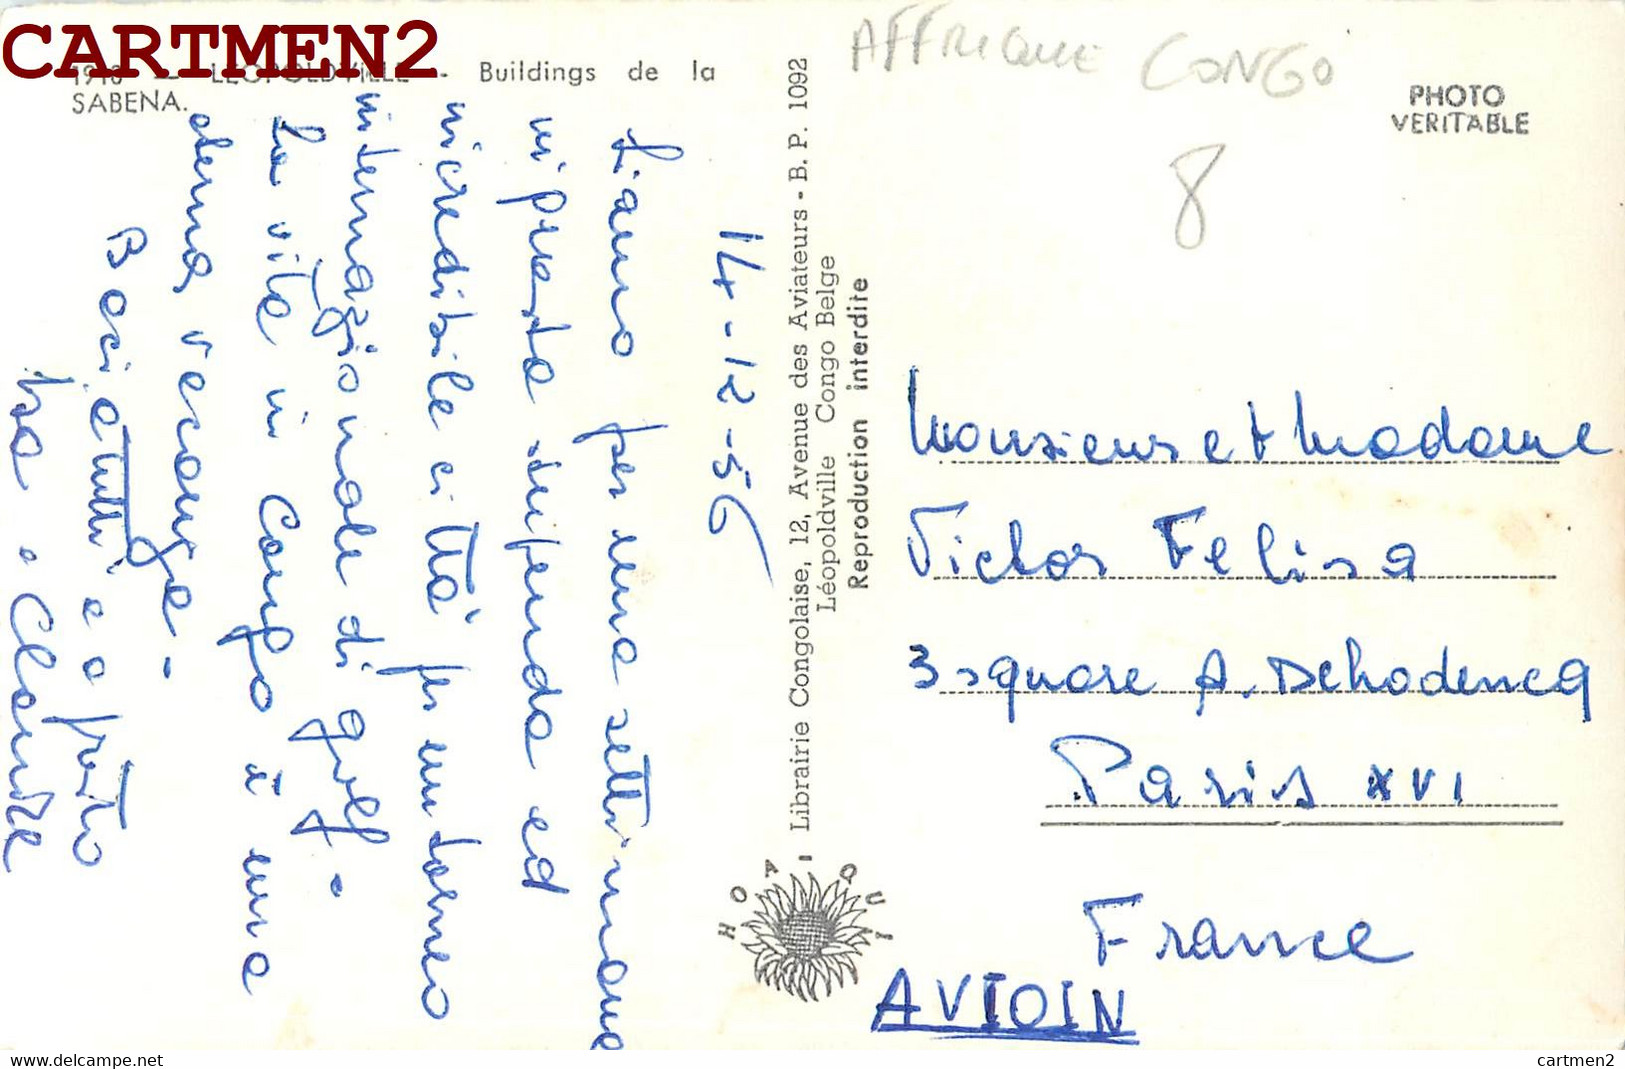 CARTMEN2
1918 — LEOPOLDVILLE - Buildings de la
SABENA.
AFFRIQUE CONGO
PHOTO
VERITABLE
8
14-12-56
Siamo per una settimana
in presta ed
incredibile città per un torneo
internazionale di golf.
La vita in Congo è una
eterna vacanza.
Baci a tutti e a presto
Isa e
Librairie Congolaise, 12, Avenue des Aviateurs - B. P. 1092
Léopoldville Congo Belge
Reproduction interdite
HOA QUI
Monsieur et Madame
Victor Felisa
3 square A. Dehodencq
Paris XVI
France
AVIOIN
delcampe.net
cartmen2